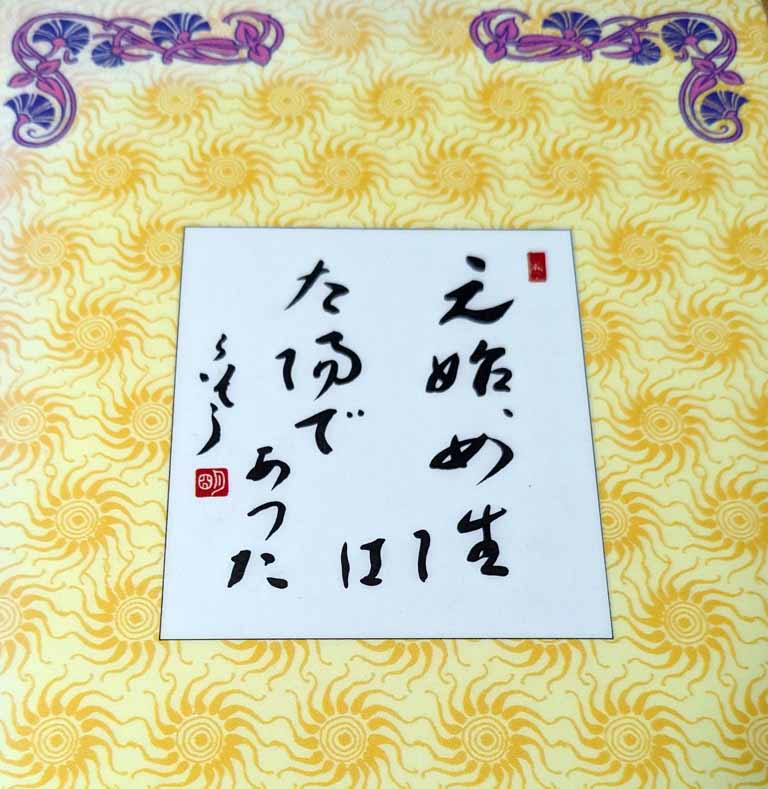 元始、女性
は
太陽で
あつた
らいてう
明